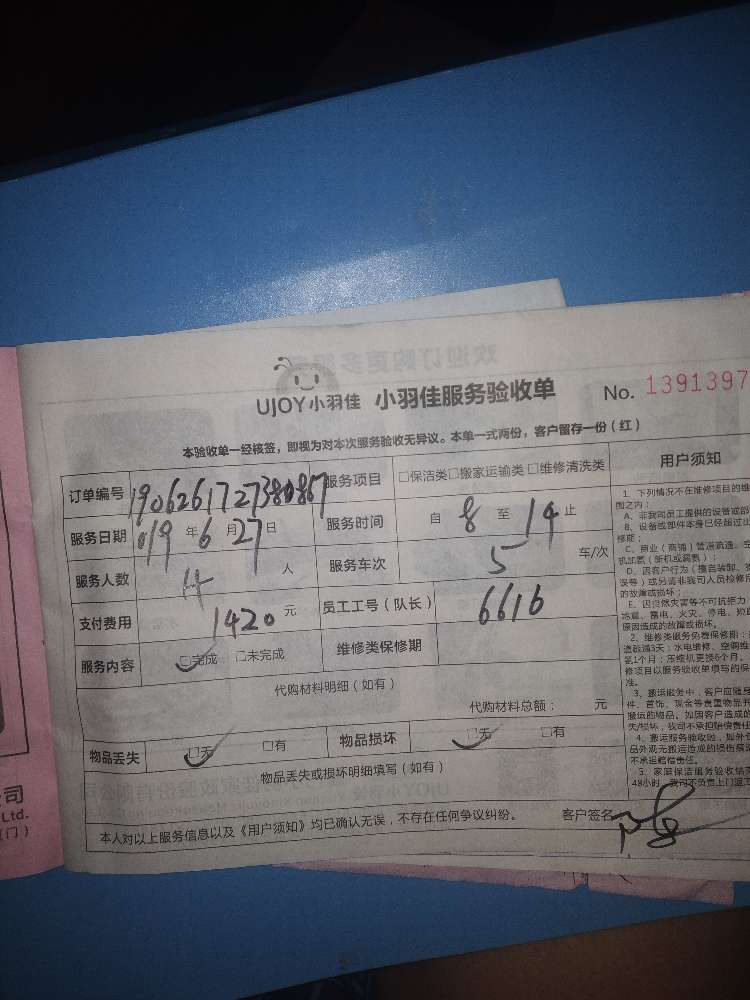 欢迎订购更多服务
UJOY小羽佳 小羽佳服务验收单 No. 1391397
本验收单一经核签，即视为对本次服务验收无异议。本单一式两份，客户留存一份（红）
订单编号 1906261727380867 服务项目 □保洁类□搬家运输类□维修清洗类 用户须知
服务日期 019 年 6 月 27 日 服务时间 自 8 至 14 止
服务人数 4 人 服务车次 5 车/次
支付费用 1420 元 员工工号（队长） 6616
服务内容 □完成 □未完成 维修类保修期
代购材料明细（如有）
代购材料总额： 元
物品丢失 □无 □有 物品损坏 □无 □有
物品丢失或损坏明细填写（如有）
本人对以上服务信息以及《用户须知》均已确认无误，不存在任何争议纠纷。 客户签名
1、下列情况不在维修项目的维
围之内：
A、非我司员工提供的设备或部
B、设备或部件本身已经超过出
修期；
C、商业（商铺）管道疏通、空
机加氨（新机或漏氨）；
D、因客户行为（擅自装卸、
误等）或另请非我司人员检修
的故障或损坏；
E、因自然灾害等不可抗拒力
雷电、火灾、停电、
原因造成的故障或损坏。
2、维修类服务免费保修期：
道疏通3天；水电维修、空调维
氨1个月；压缩机更换6个月。
修项目以服务验收单填写的保
准。
3、搬运服务中，客户应随身
件、首饰、现金等贵重物品并
搬运的物品。如因客户造成的
失/损坏，我司不承担赔偿责任
4、搬运服务验收时，如外包
品外观无搬运造成的损伤痕迹
不承担赔偿责任。
5、家庭保洁服务验收结束
48小时，我司不负责上门返工
公司
Ltd.
门）